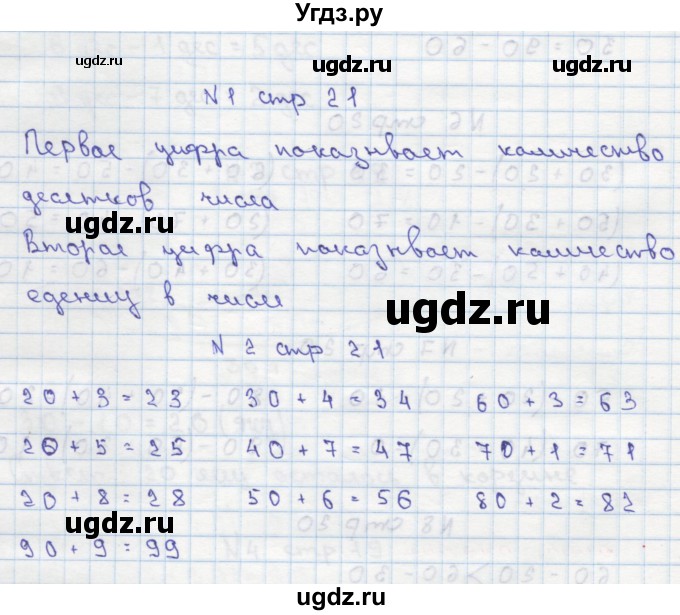 Угдз.ру
ugdz.ru ugdz.ru ugdz.ru
N1 стр 21
Первая цифра показывает количество
десятков числа
ugdz.ru
Вторая цифра показывает количество
едениц в числе
ugdz.ru
N 2 стр 21
20 + 3 = 23 30 + 4 = 34 60 + 3 = 63
20 + 5 = 25 40 + 7 = 47 70 + 1 = 71
20 + 8 = 28 50 + 6 = 56 80 + 2 = 82
ugdz.ru ugdz.ru ugdz.ru
90 + 9 = 99
ugdz.ru